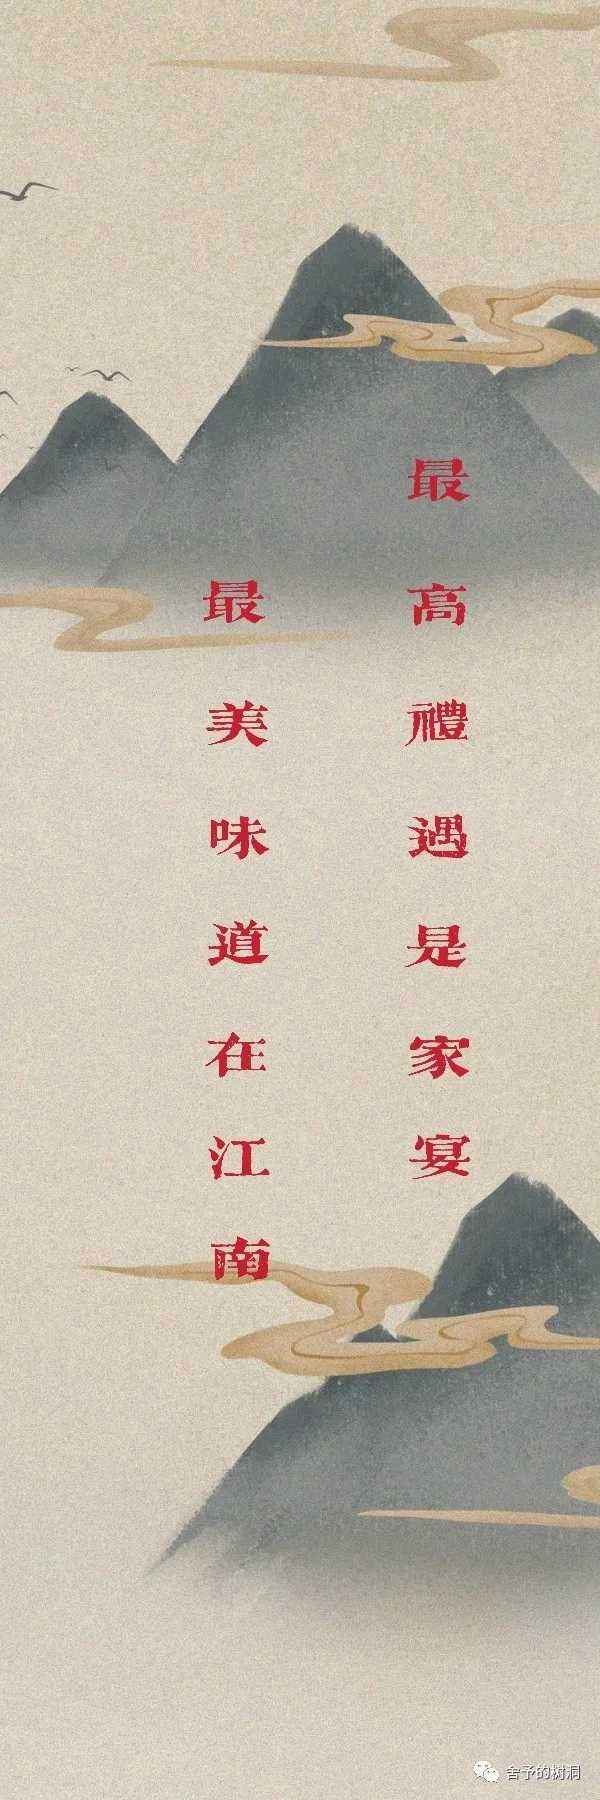 最高禮遇是家宴
最美味道在江南
舍予的树洞